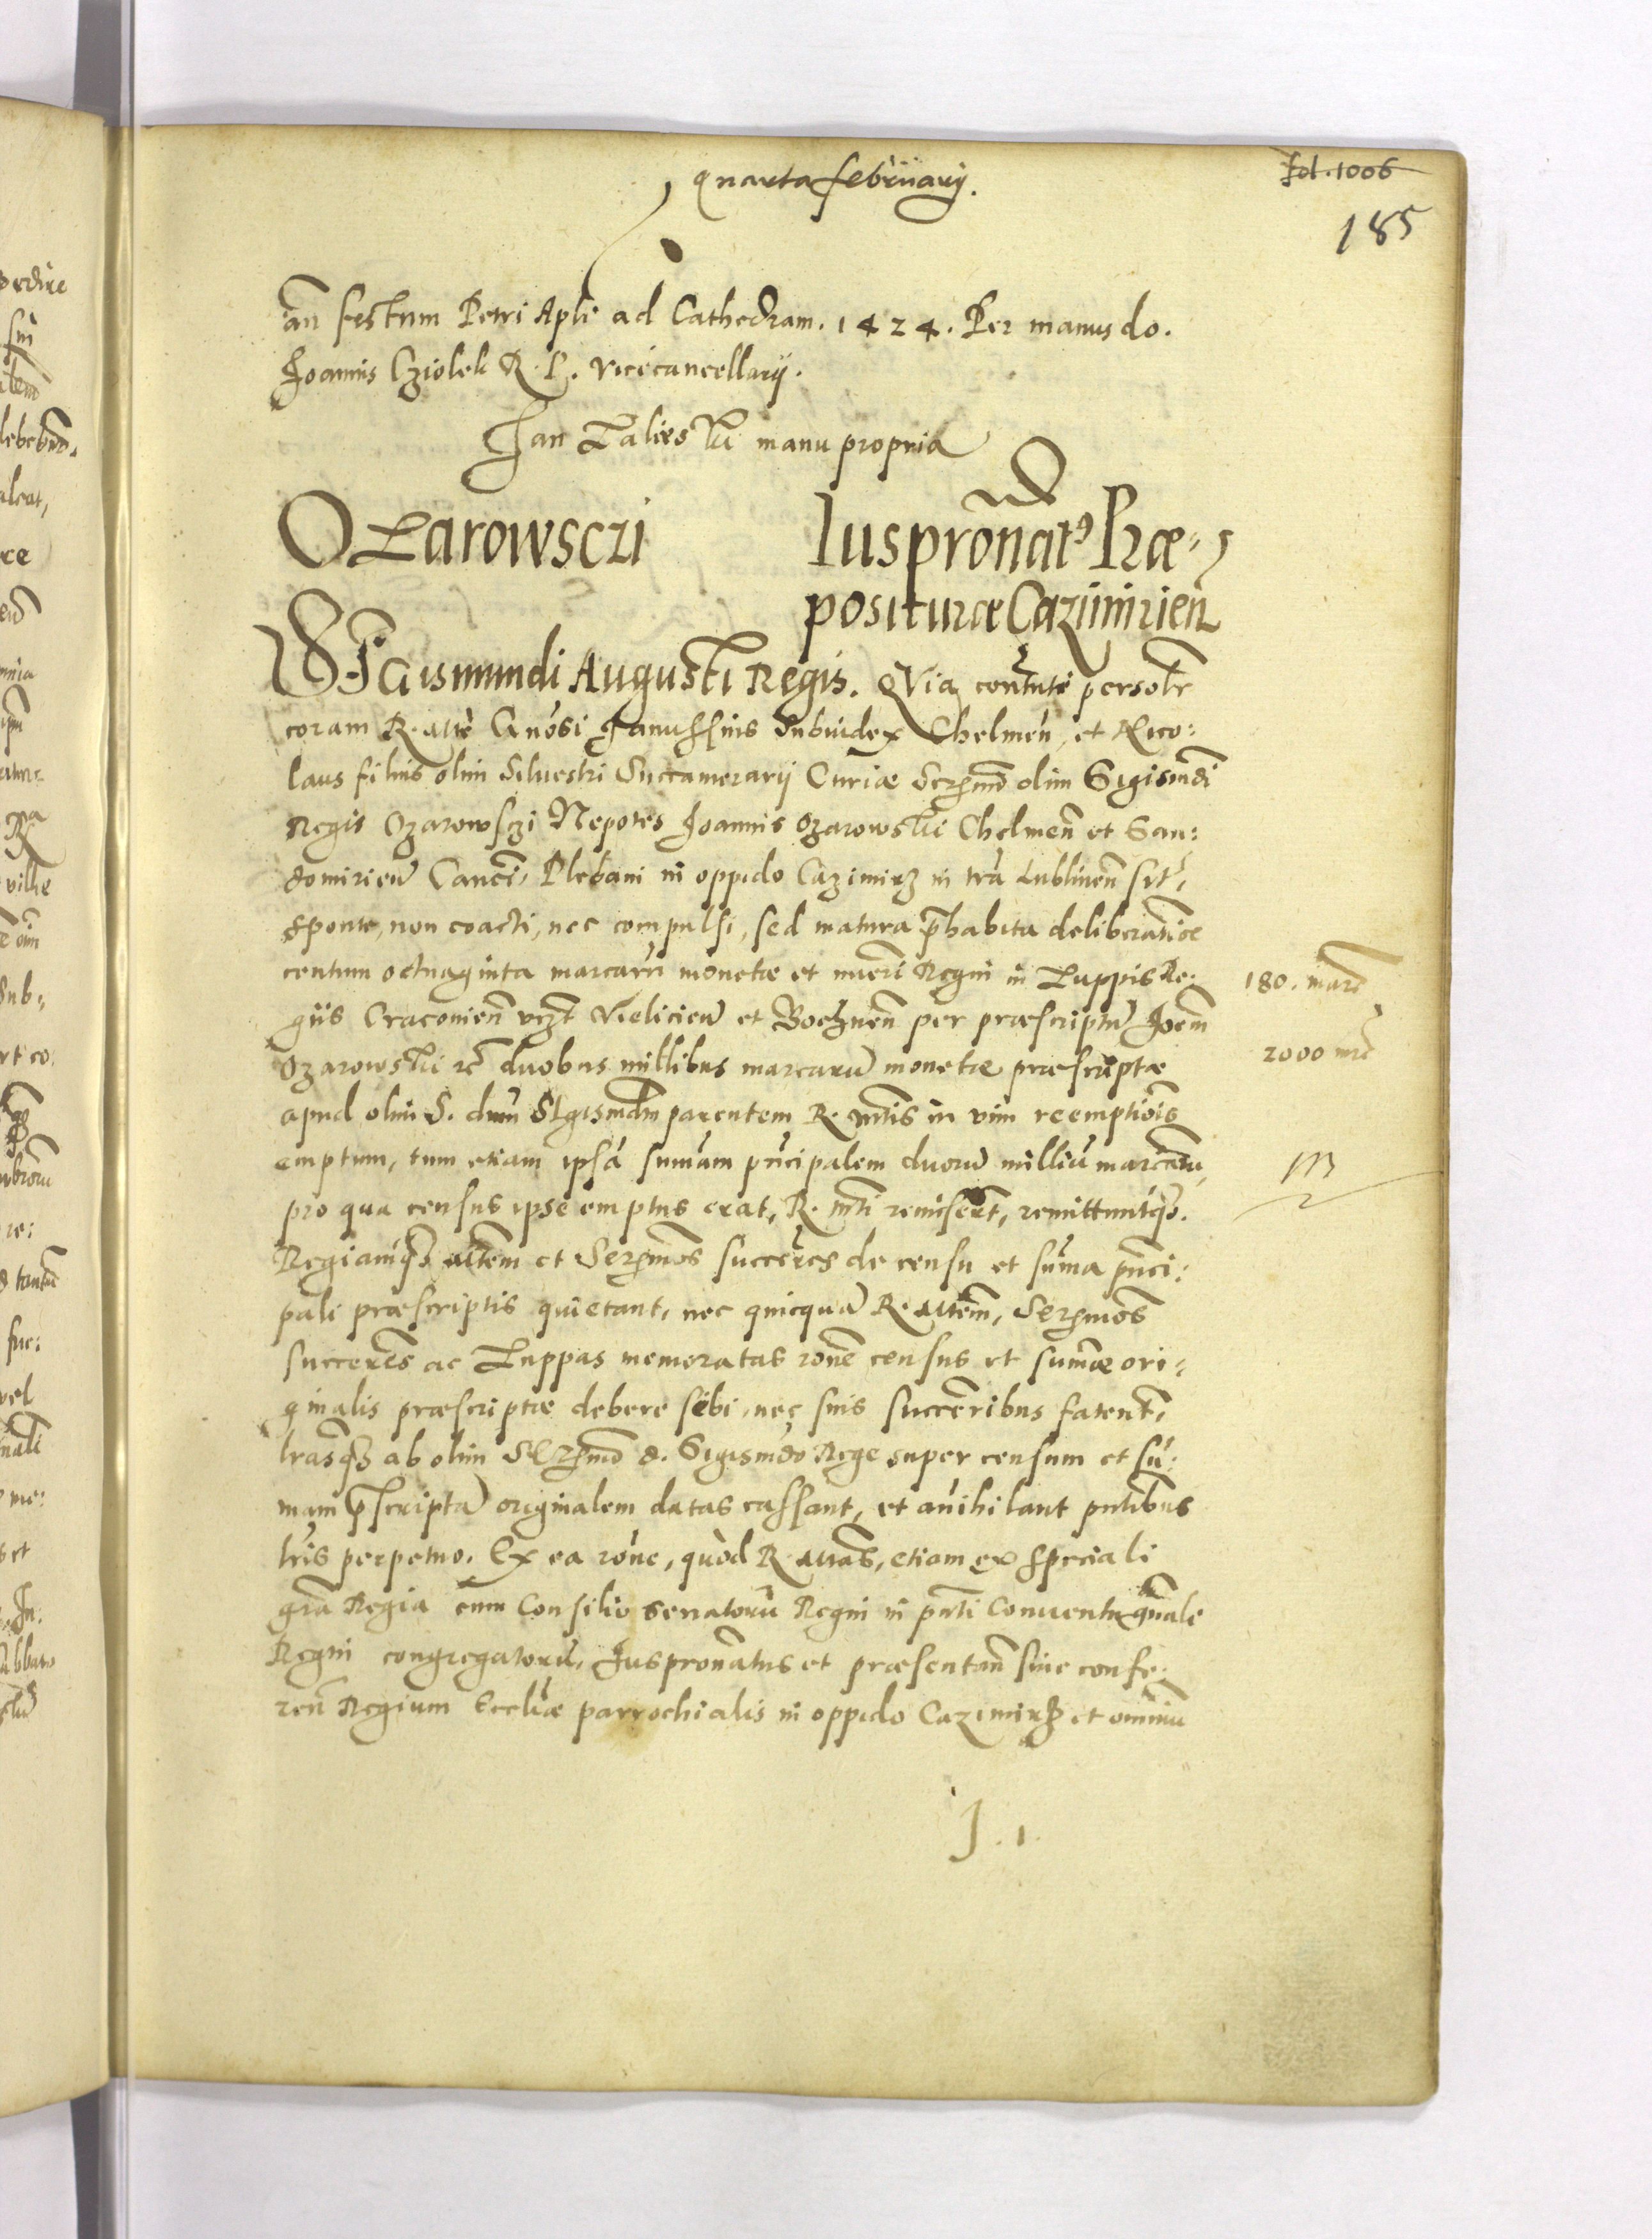 quarta februarij.
Fol. 1006
185
an festum Petri Apli ad Cathedram. 1424. Per manus do.
Joannis Cziolek R. P. vicecancellarij.
Jan Zaliesky manu propria
OZarowsczi
Iuspronatꝰ Præ-
posituræ Cazimirien
SIGismundi Augusti Regis. QVia constituti personalr
coram R. Mte Gnosi Janussius Subiudex Chelmen, et Nico:
laus filius olim Siluestri Succamerarij Curiæ Sermi olim Sigismdi
Regis Ozarowsczi Nepotes Joannis Ozarowski Chelmen et San:
domirien Canci, Plebani in oppido Cazimirz in tra Lublinen sit,
sponte, non coacti, nec compulsi, sed matura prhabita deliberatioe
centum octuaginta marcaru monetæ et nueri Regni in Zuppis Re:
giis Cracouien vrzt Vieliciem et Bochnen per præscriptu Joem
Ozarowski rc duobus millibus marcaru monetæ præscriptæ
apud olim S. dnum SIgismdm parentem R. Mtis in vim reemptiois
emptum, tum etiam ipsa sumam prncipalem duoru milliu marcaru,
pro qua census ipse emptus erat, R. Mti remisert, remittuntqꝫ.
Regiamqꝫ Mtem et Sermos succeres de censu et suma prnci:
pali præscriptis quietant, nec quicqua R. Mtem, Sermos
succeres ac Zuppas memoratas rone census et sumæ ori:
ginalis præscriptæ debere sibi, nec suis succeribus fatent,
lrasqꝫ ab olim SErmo d. Sigismdo Rege super censum et su:
mam prscripta originalem datas cassant, et anihilant pntibus
lris perpetuo. Ex ea rone, quod R. Mtas, etiam ex speciali
gra Regia cum Consilio senatoru Regni in pnti Conuentu gnrale
Regni congregatoru, Juspronatus et præsentan siue confe:
ren Regium Eccliæ parrochialis in oppido Cazimirz et omniu
180. marc
2000 mrc
J. 1.